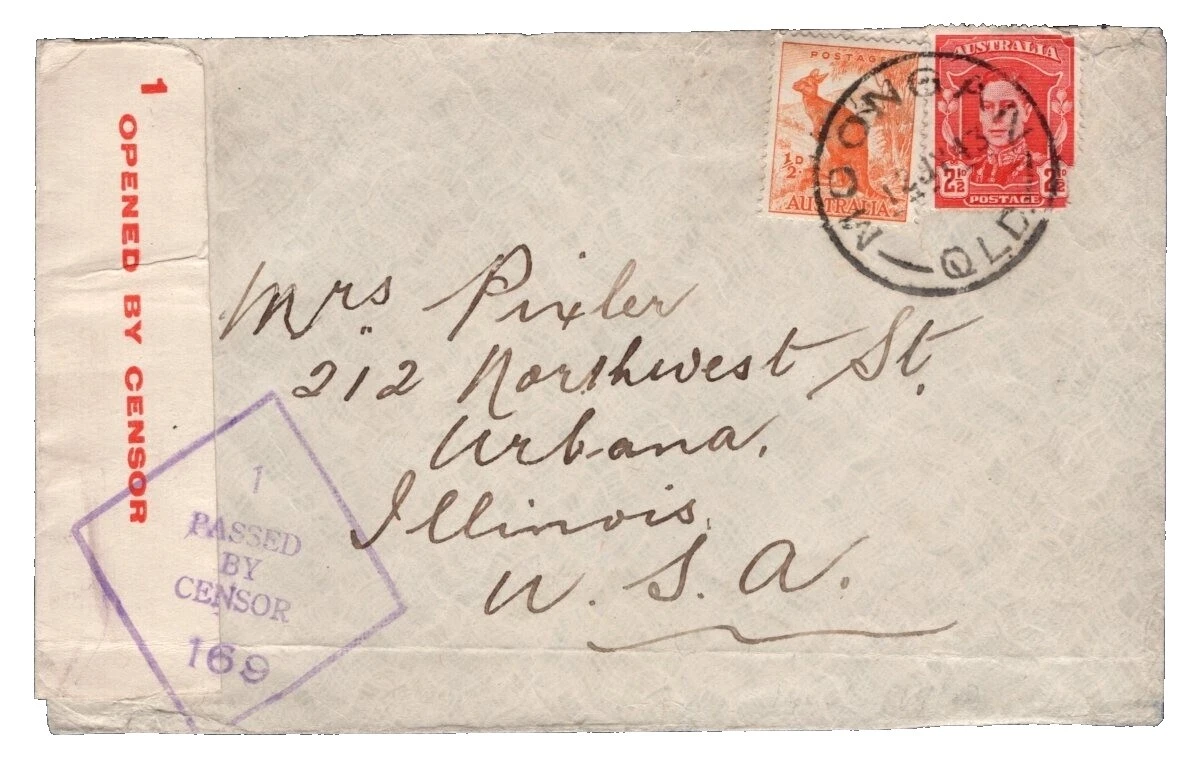 1 OPENED BY CENSOR
POSTAGE
½D
AUSTRALIA
AUSTRALIA
2½D 2½D
POSTAGE
MOONGAN
12 JY 43
QLD.
Mrs Pixler
212 Northwest St.
Urbana,
Illinois,
U. S. A.
1
PASSED
BY
CENSOR
169